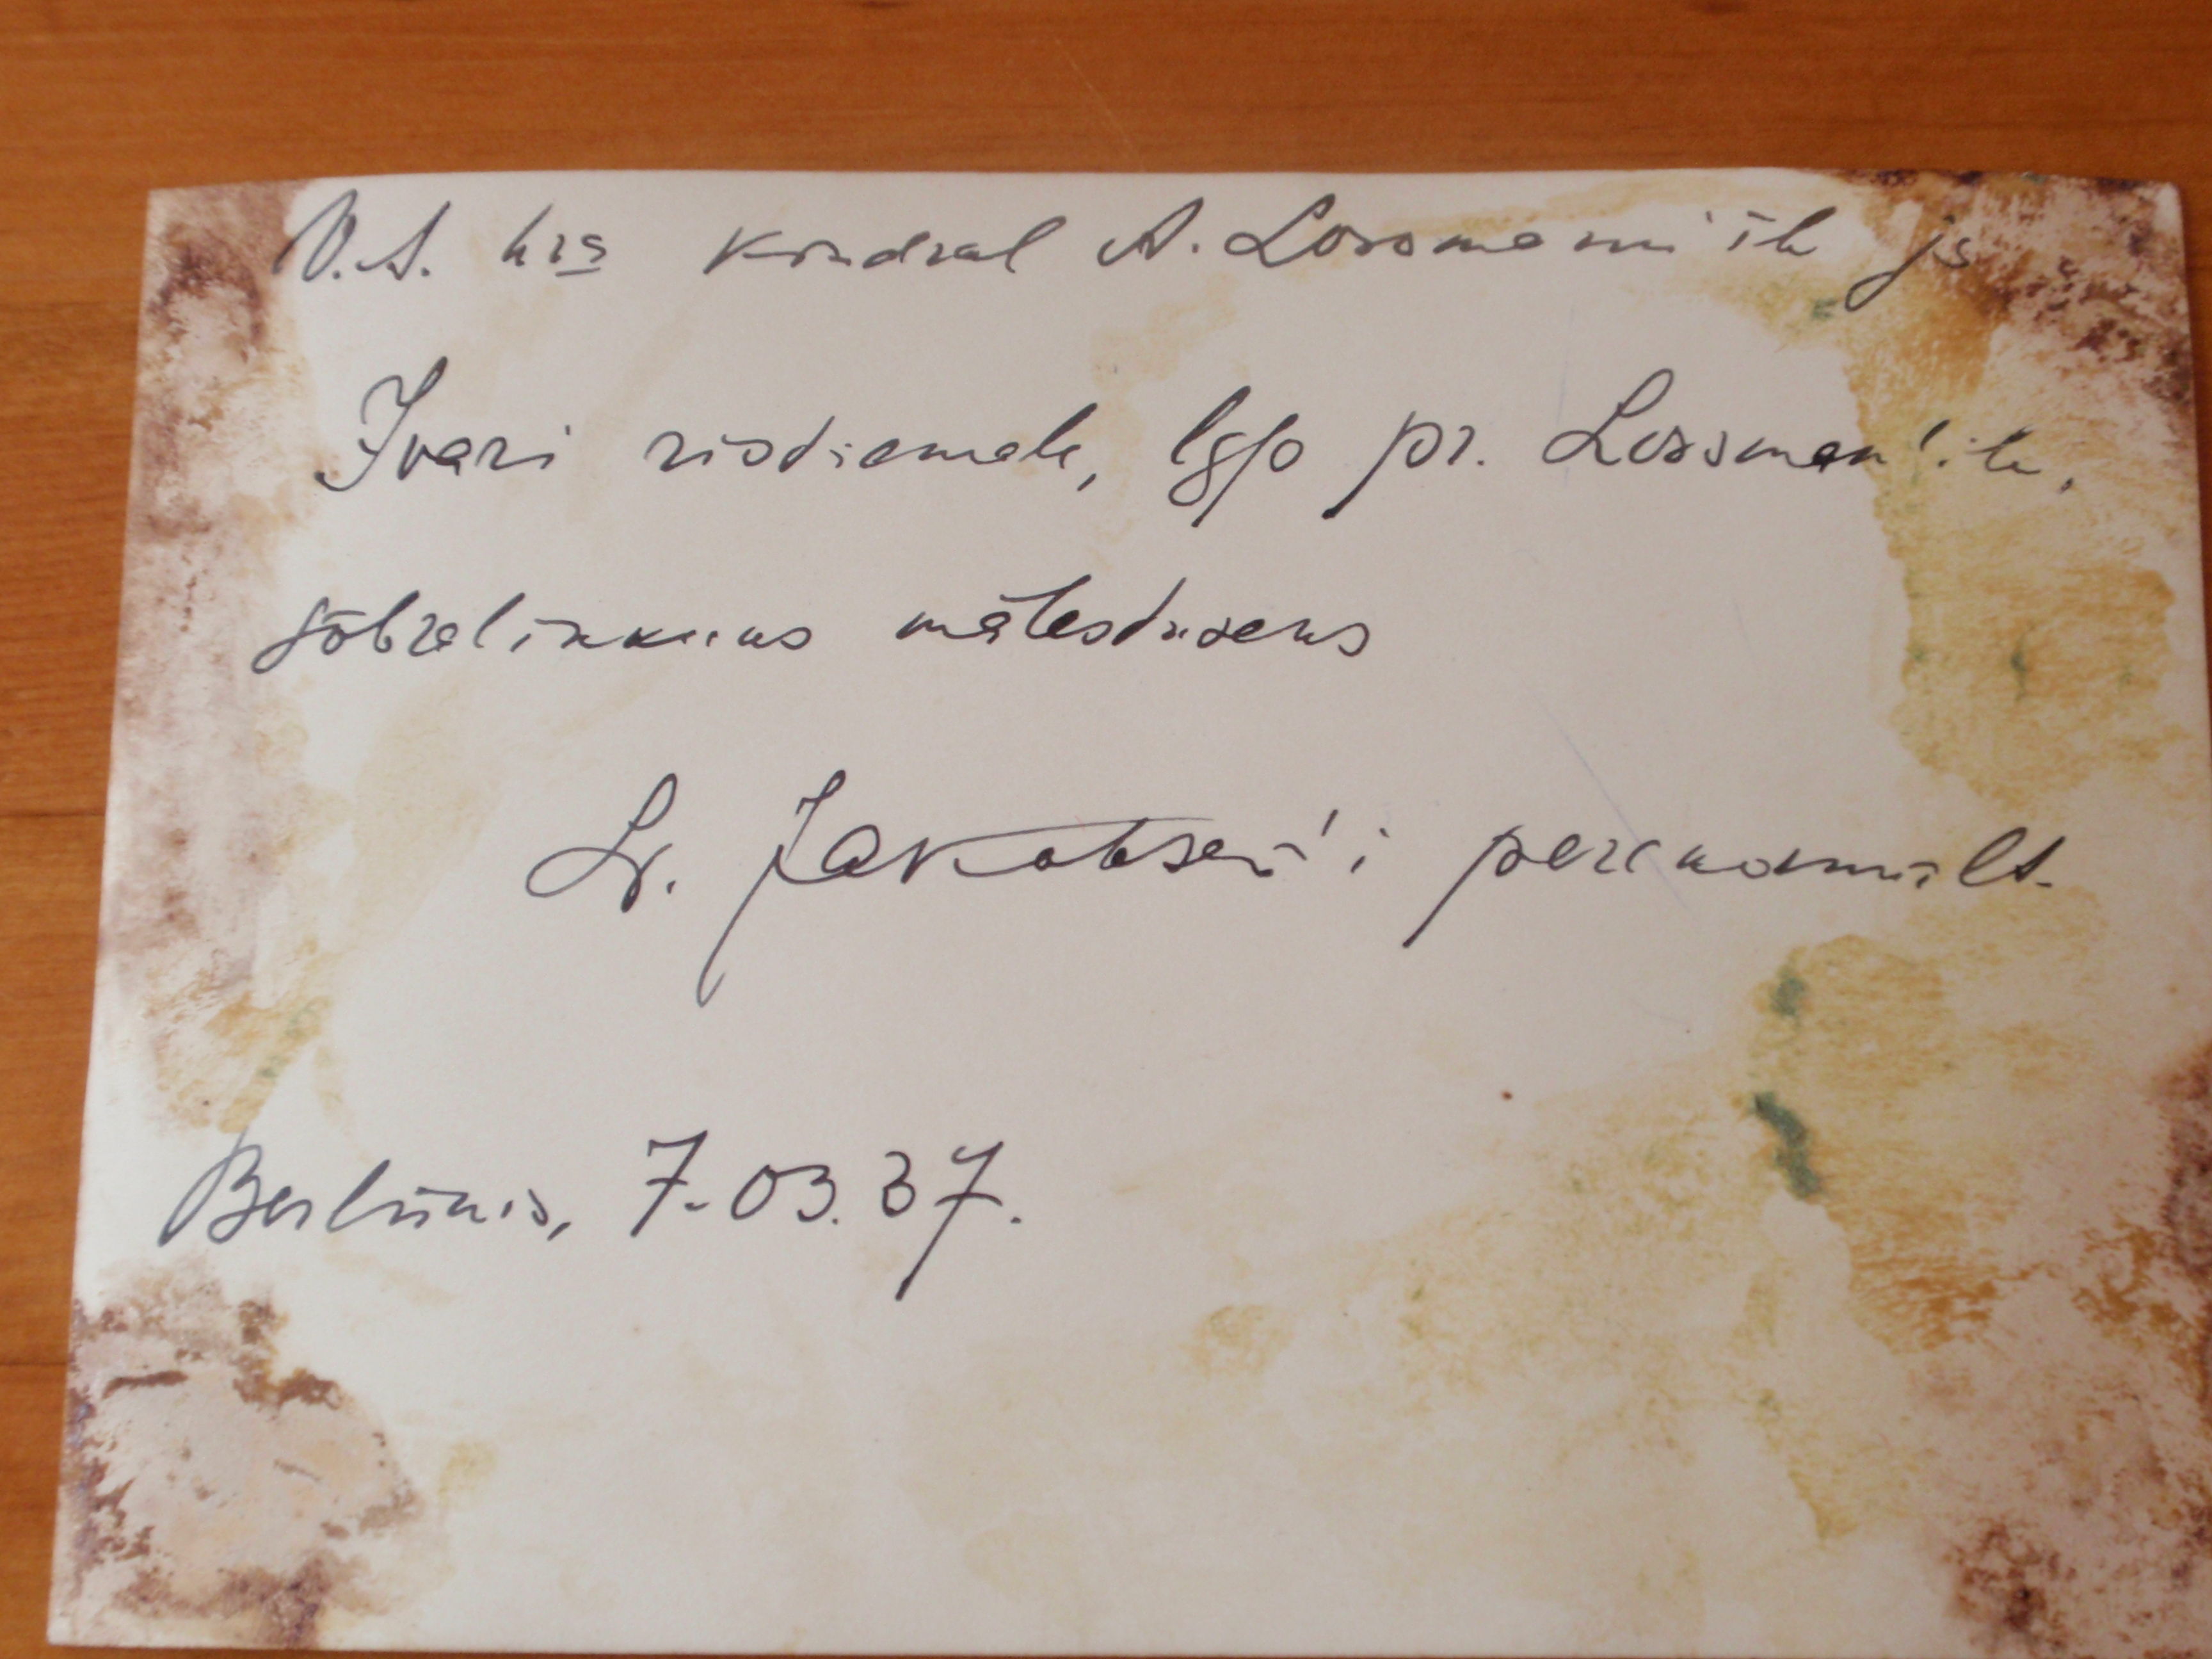 V.A. hra Kindral A. Lossmann'ile ja
Ivari ristiemale, lgp pr. Lossman'ile,
sõbralikkuks mälestuseks
Lt. Jakobsen'i perekonnalt.
Berliinis, 7.03.37.